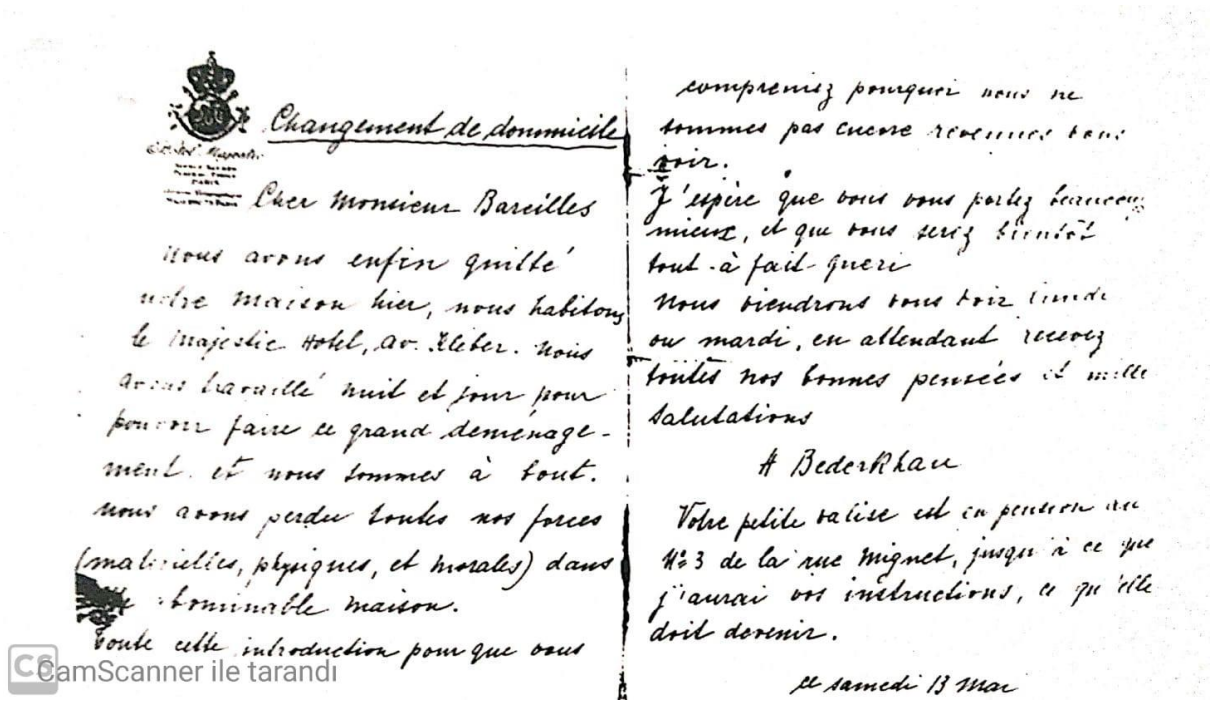 Hotel Majestic
PARIS
Changement de dommicile
Cher Monsieur Bareilles
Nous avons enfin quitté
notre maison hier, nous habitons
le Majestic Hotel, av. Kléber. Nous
avons travaillé nuit et jour pour
pouvoir faire ce grand deménage-
ment. et nous sommes à bout.
Nous avons perdu toutes nos forces
(materielles, physiques, et morales) dans
abominable maison.
Toute cette introduction pour que vous
compreniez pourquoi nous ne
sommes pas encore revenues vous
voir.
J'espère que vous vous portez beaucoup
mieux, et que vous serez bientôt
tout-à-fait-gueri
Nous viendrons vous voir lundi
ou mardi, en attendant recevez
toutes nos bonnes pensées et mille
salutations
A BederKhan
Votre petite valise est en pension au
No 3 de la rue Mignet, jusqu'à ce que
j'aurai vos instructions, ce qu'elle
doit devenir.
ce samedi 13 Mai
CS CamScanner ile tarandı